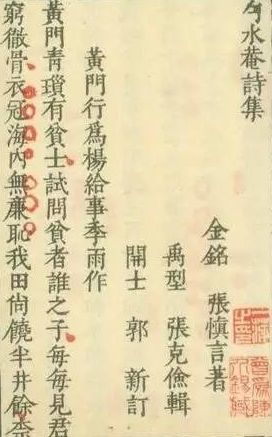 水菴詩集
金銘 張慎言著
禹型 張克儉輯
開士 郭新訂
黃門行爲楊給事季雨作
黃門青瑣有貧士試問貧者誰之子每每見君
窮徹骨衣冠海內無廉恥我田尚饒半井餘